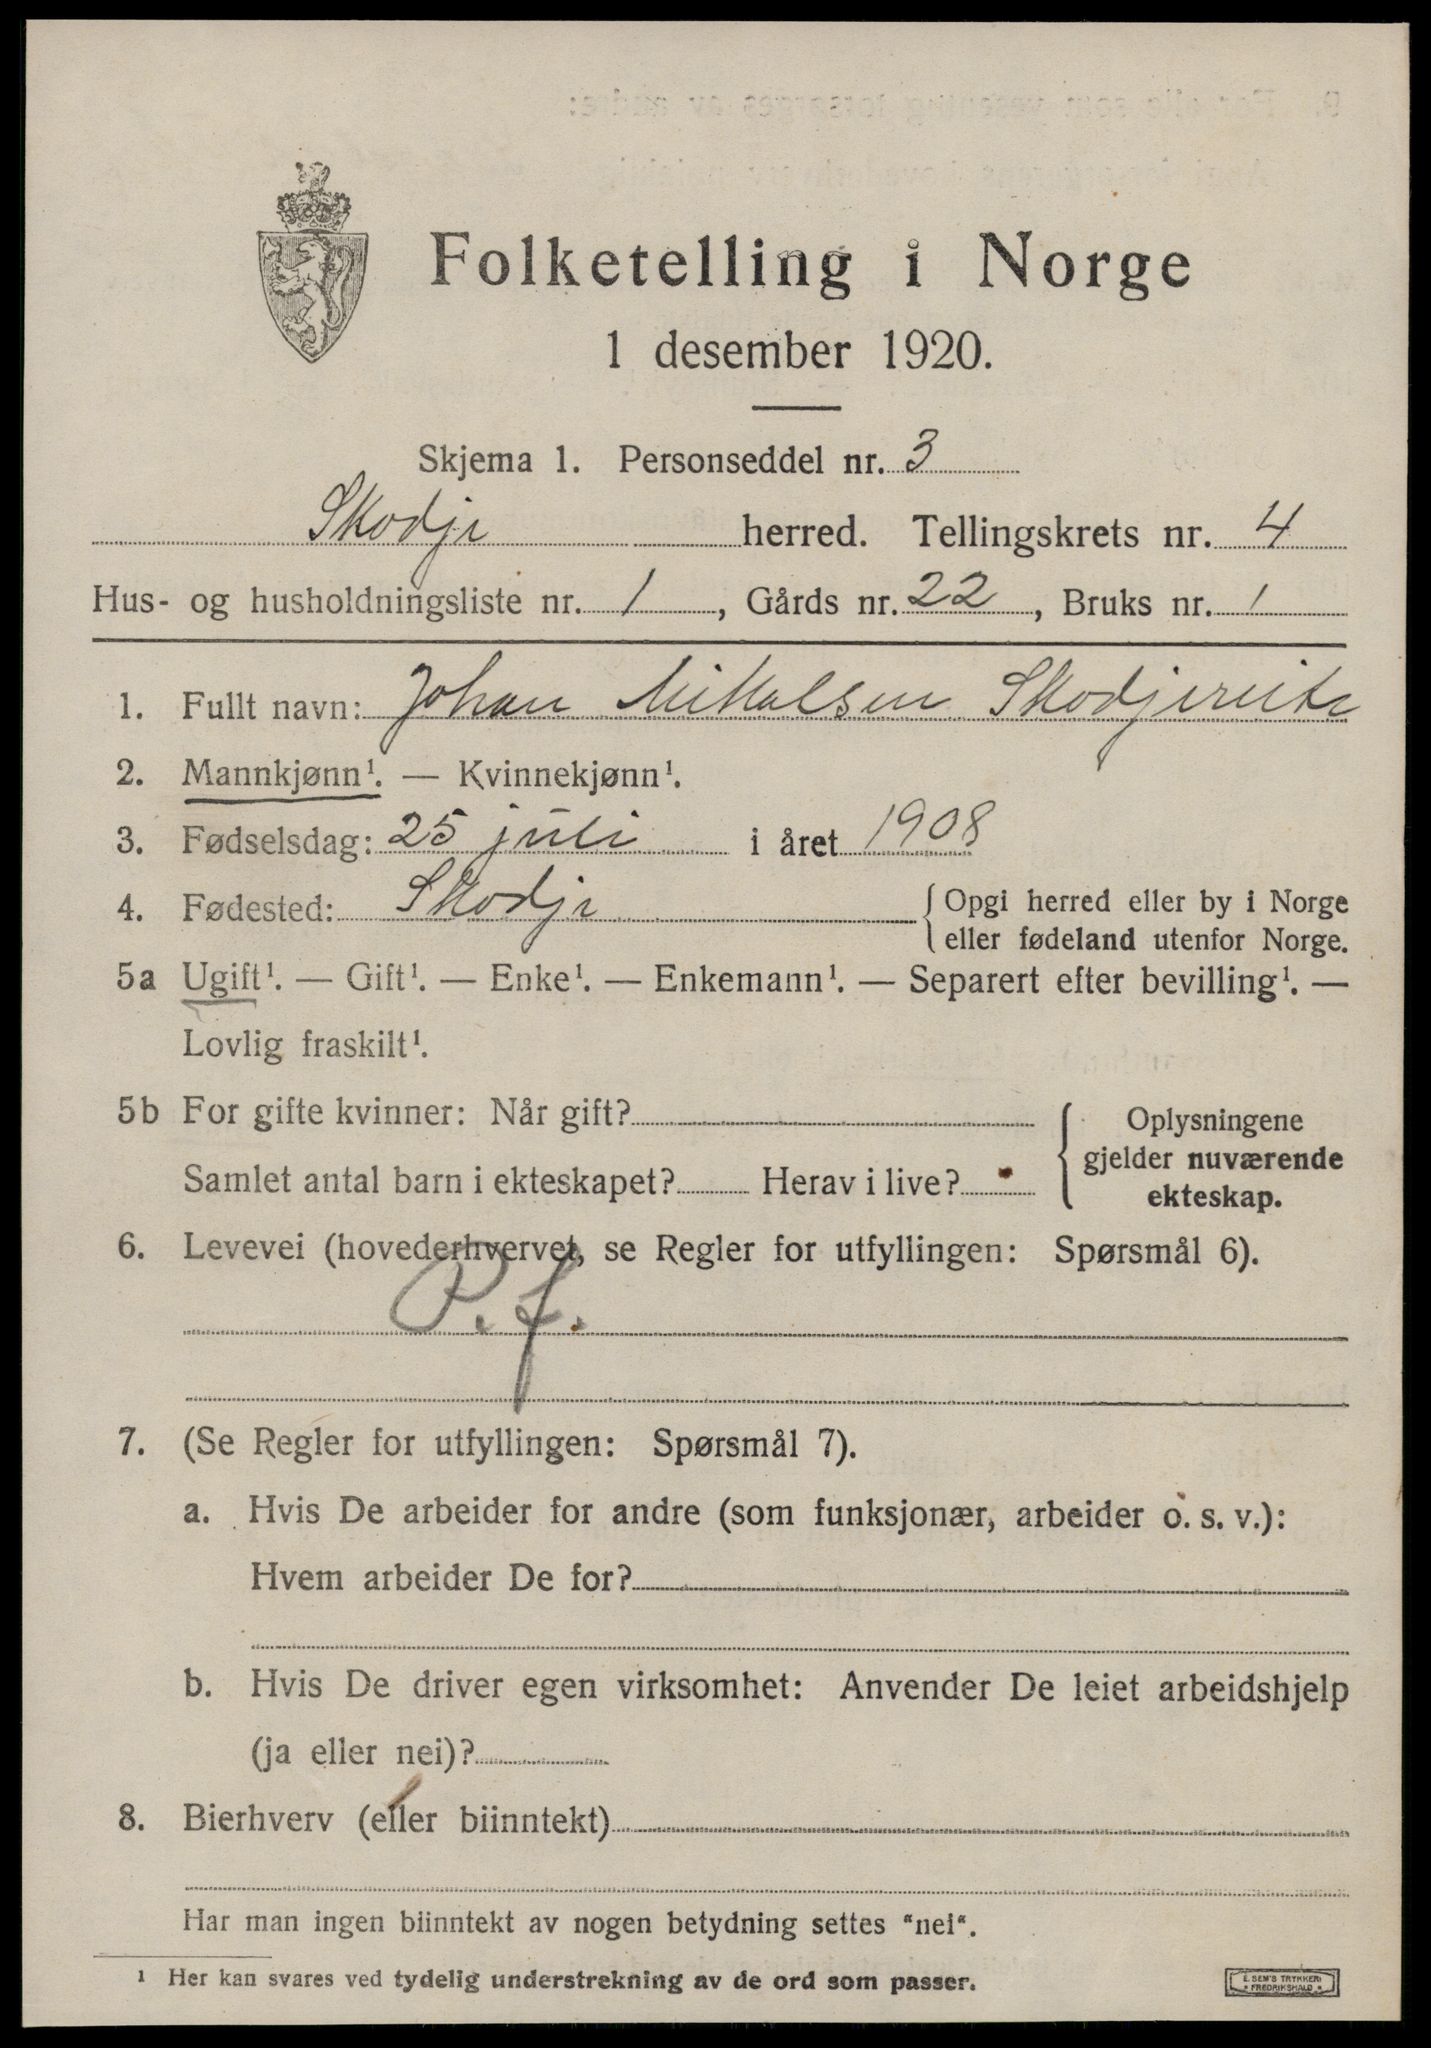 Folketelling i Norge
1 desember 1920.
Skjema 1. Personseddel nr. 3
Skodje herred. Tellingskrets nr. 4
Hus- og husholdningsliste nr. 1, Gårds nr. 22, Bruks nr. 1
1. Fullt navn: Johan Mikalsen Skodjereite
2. Mannkjønn¹. — Kvinnekjønn¹.
3. Fødselsdag: 25 juli i året 1908
4. Fødested: Skodje { Opgi herred eller by i Norge
eller fødeland utenfor Norge.
5a Ugift¹. — Gift¹. — Enke¹. — Enkemann¹. — Separert efter bevilling¹. —
Lovlig fraskilt¹.
5b For gifte kvinner: Når gift?
Samlet antal barn i ekteskapet? Herav i live?
{ Oplysningene
gjelder nuværende
ekteskap.
6. Levevei (hovederhvervet, se Regler for utfyllingen: Spørsmål 6).
P.f.
7. (Se Regler for utfyllingen: Spørsmål 7).
a. Hvis De arbeider for andre (som funksjonær, arbeider o. s. v.):
Hvem arbeider De for?
b. Hvis De driver egen virksomhet: Anvender De leiet arbeidshjelp
(ja eller nei)?
8. Bierhverv (eller biinntekt)
Har man ingen biinntekt av nogen betydning settes "nei".
¹ Her kan svares ved tydelig understrekning av de ord som passer.
E. SEM'S TRYKKERI
FREDRIKSHALD